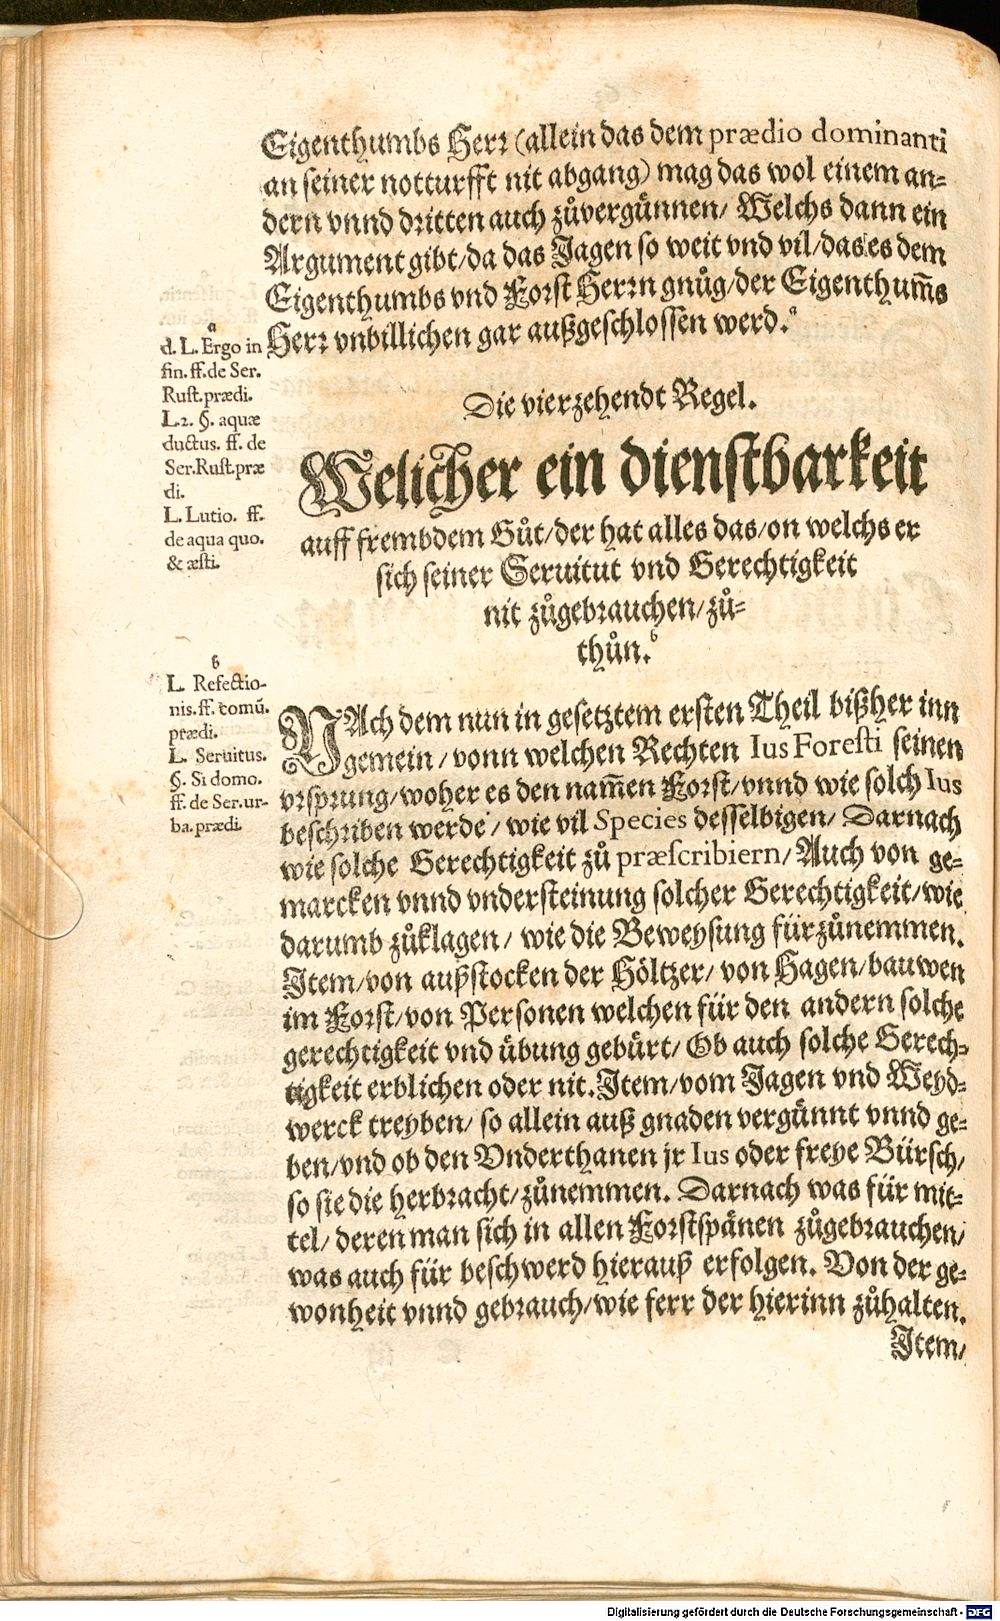 Eigenthumbs Herꝛ (allein das dem prædio dominanti
an seiner notturfft nit abgang) mag das wol einem an⸗
dern vnnd dritten auch zůvergünnen/ Welchs dann ein
Argument gibt/da das Jagen so weit vnd vil/das es dem
Eigenthumbs vnd Forst Herrn gnůg/der Eigenthum̃s
Herꝛ vnbillichen gar außgeschlossen werd.ᵃ
a
d. L. Ergo in
fin. ff. de Ser.
Rust. prædi.
L. 2. §. aquæ
ductus. ff. de
Ser. Rust. præ
di.
L. Lutio. ff.
de aqua quo.
& æsti.
Die vierzehendt Regel.
Welicher ein dienstbarkeit
auff frembdem Gůt/der hat alles das/on welchs er
sich seiner Seruitut vnd Gerechtigkeit
nit zůgebrauchen/zů⸗
thůn.ᵇ
b
L. Refectio-
nis. ff. comũ.
prædi.
L. Seruitus.
§. Si domo.
ff. de Ser. ur-
ba. prædi.
NAch dem nun in gesetztem ersten Theil bißher inn
gemein/vonn welchen Rechten Ius Foresti seinen
vrsprung/woher es den nam̃en Forst/vnnd wie solch Ius
beschriben werde/wie vil Species desselbigen/ Darnach
wie solche Gerechtigkeit zů præscribiern/Auch von ge⸗
marcken vnnd vndersteinung solcher Gerechtigkeit/wie
darumb zůklagen/ wie die Beweysung fürzůnemmen.
Item/von außstocken der Höltzer/von Hagen/bauwen
im Forst/von Personen welchen für den andern solche
gerechtigkeit vnd übung gebürt/ Ob auch solche Gerech⸗
tigkeit erblichen oder nit. Item/vom Jagen vnd Weyd⸗
werck treyben/ so allein auß gnaden vergünnt vnnd ge⸗
ben/vnd ob den Vnderthanen jr Ius oder freye Bürsch/
so sie die herbracht/zůnemmen. Darnach was für mit⸗
tel/ deren man sich in allen Forstspänen zůgebrauchen/
was auch für beschwerd hierauß erfolgen. Von der ge⸗
wonheit vnnd gebrauch/wie ferr der hierinn zůhalten.
Item/
Digitalisierung gefördert durch die Deutsche Forschungsgemeinschaft - DFG